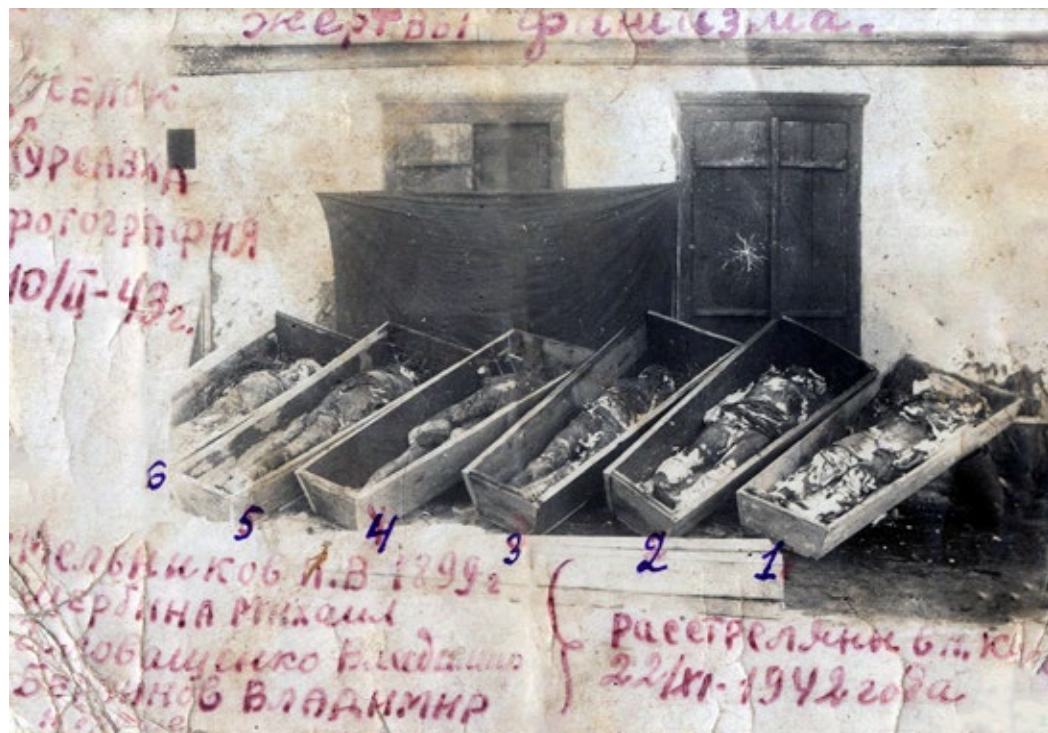 жертвы фашизма.
Курсавка
фотография
10/II-43г.
6
5
4
3
2
1
Мельников П.В 1899г
Щербина Михаил
Владимир
Владимир
Расстреляны в п. К
22/XI-1942 года